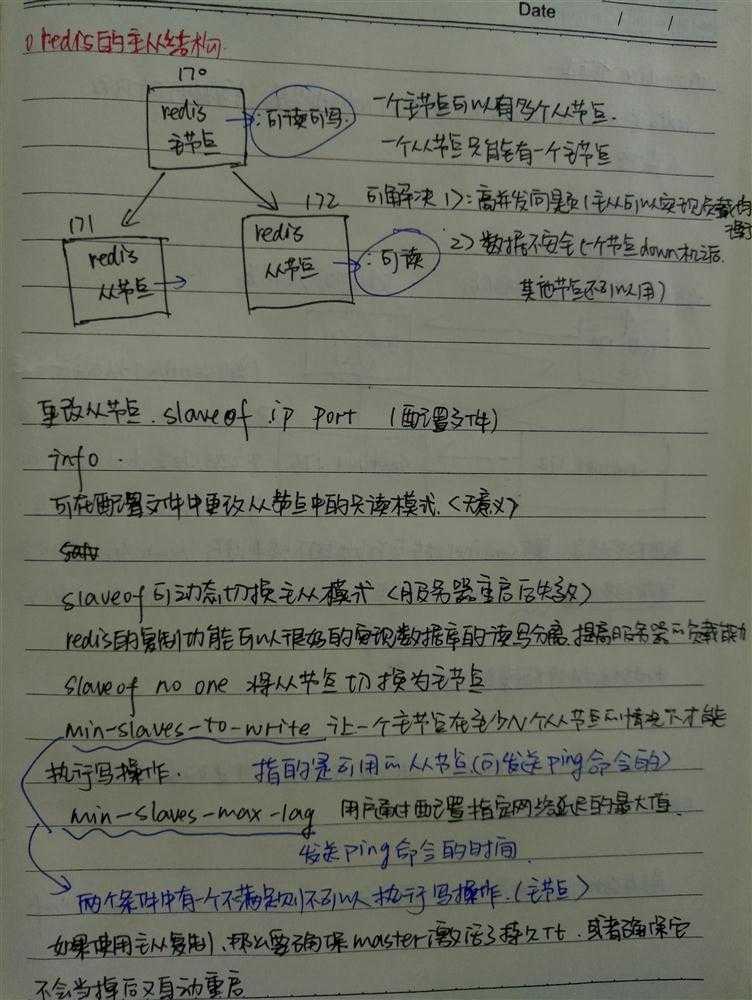 Date
/ /
① redis的主从结构
170
redis
主节点
:可读可写.
一个主节点可以有多个从节点.
一个从节点只能有一个主节点
171
redis
从节点
172
redis
从节点
:可读
可解决 1>:高并发问题(主从可以实现负载均衡
2>数据不安全(一个节点down机之后
其他节点还可以用)
更改从节点. slaveof ip port (配置文件)
info .
可在配置文件中更改从节点中的只读模式.<无意义>
slaveof 可动态切换主从模式 <服务器重启后失效>
redis的复制功能可以很好的实现数据库的读写分离.提高服务器的负载能力
slaveof no one 将从节点切换为主节点
min-slaves-to-write 让一个主节点在至少N个从节点的情况下才能
执行写操作. 指的是可用的从节点(可发送ping命令的)
min-slaves-max-lag 用户通过配置指定网络延迟的最大值.
发送ping命令的时间.
两个条件中有一个不满足则不可以执行写操作.(主节点)
如果使用主从复制,那么要确保master激活了持久化.或者确保它
不会当掉后又自动重启